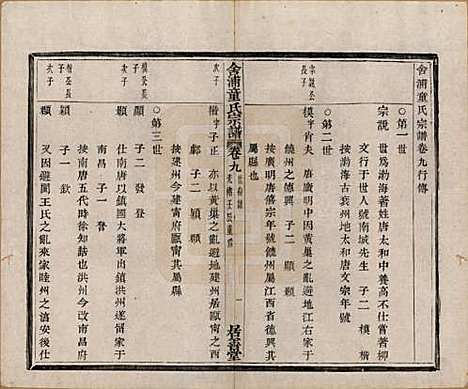 舍浦童氏宗譜卷九行傳
○第一世
宗說 世為渤海著姓唐太和中養高不仕嘗著柳
文行于世人號南城先生 子二 模 楷
按渤海古兗州地太和唐文宗年號
○第二世
宗說公長子
模 字肯夫 唐廣明中因黃巢之亂避地江右家于
饒州之德興 子二 顒 穎
按廣明唐僖宗年號饒州屬江西省德興其
屬縣也
舍浦童氏宗譜 卷九
一
居善堂
次子
楷 字子正 亦以黃巢之亂避地建州甌甯之西
鄙 子二 穎 顯
按建州今建甯府甌甯其屬縣
○第三世
模公長子
顒 仕南唐以鎮國大將軍出鎮洪州遂留家于
南昌 子一 晉
按南唐五代時徐知誥也洪州今南昌府
楷公長子
穎 子一 欽
次子
顯 又因避閩王氏之亂來家睦州之清安後仕